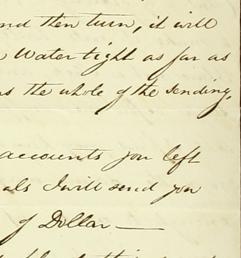 and then turn, it will
Water tight as far as
the whole of the sending,
accounts you left
als I will send you
of Dollar —